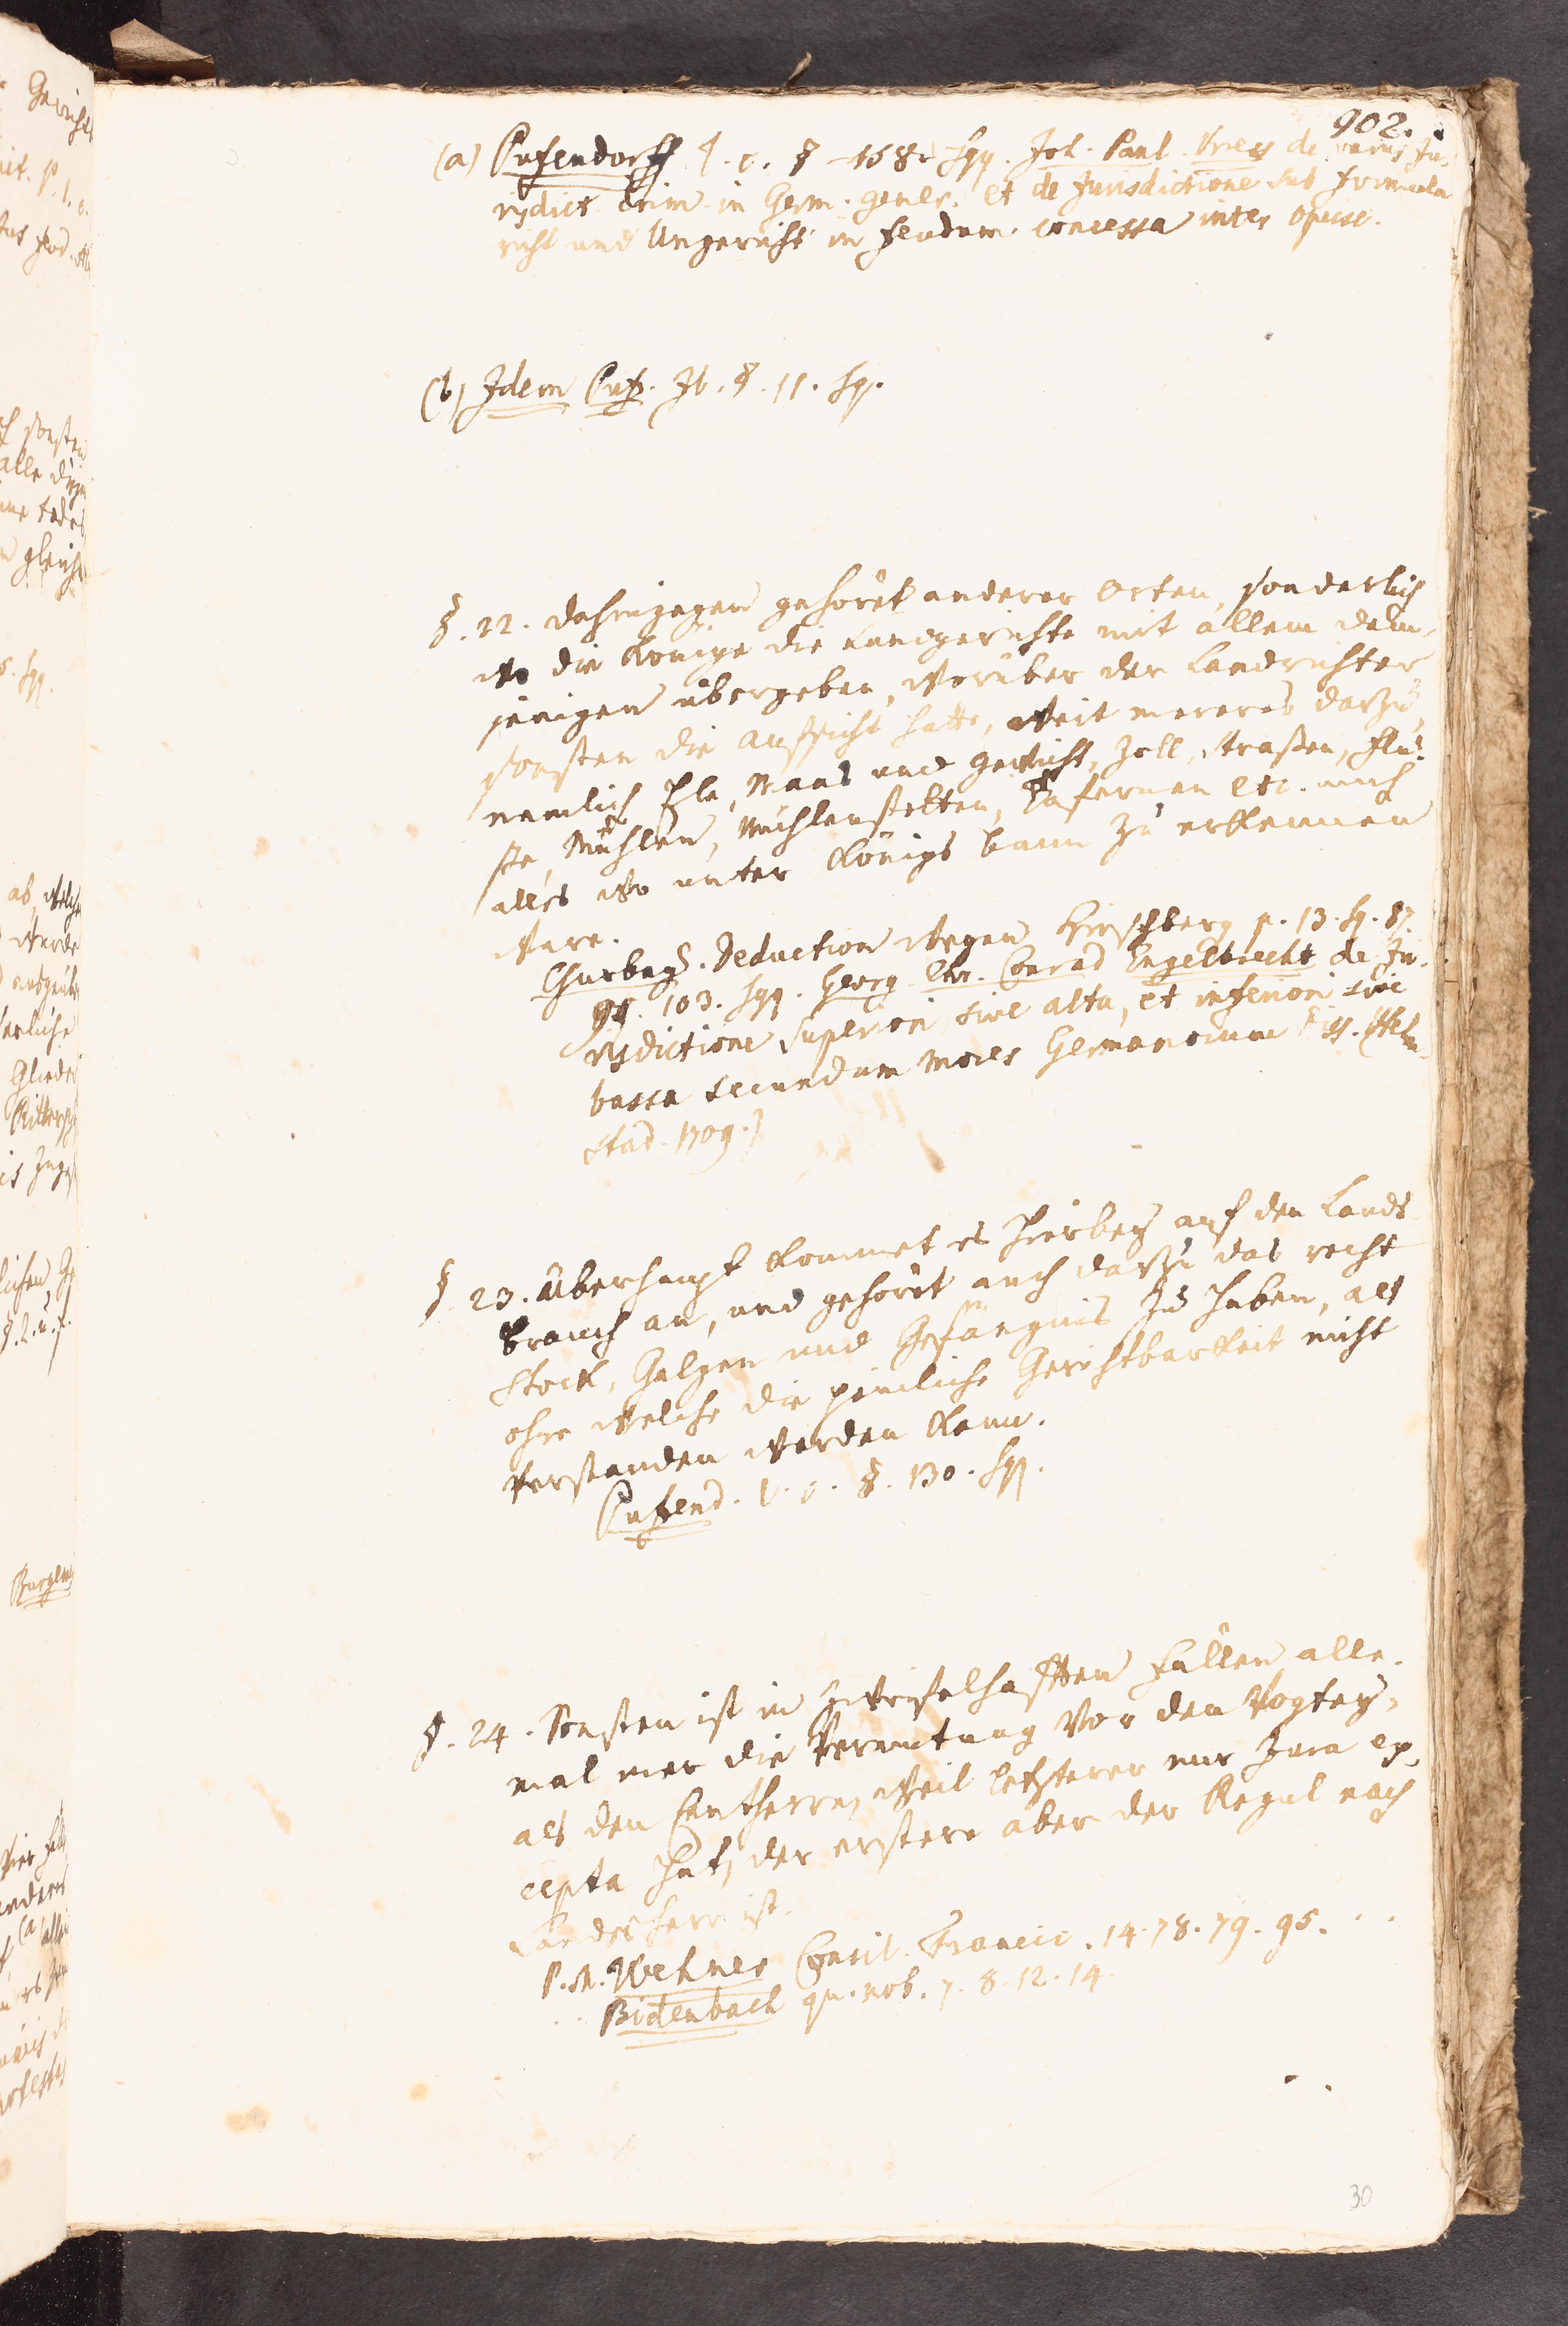 902.
(a) Pufendorff l. c. § 158. sqq. Joh. Paul Kress de variis Ju-
rysdict. Crim. in Germ. gener. et de Jurisdictione sub formula
richt und Ungericht in feudum concessa inter opusc.
(b) Idem Puf. Ib. §. 11. sq.
§. 22. Dahingegen gehöret anderer Orten, sonderlich
wo die Könige die Landgerichte mit allem dem-
jenigen übergeben, worüber der Landrichter
sonsten die Aufsicht hatte, weit mereres darzu,
nemlich Ehle, Maas und Gewicht, Zoll, Strassen, Flüs-
se, Mühlen, Mühlenstetten, Tafernen etc. auch
alles wo unter Königs bann zu erkennen
ware.
Churbay. Deduction wegen Hirschberg p. 13. sq. 87.
99. 103. sqq. Georg Chr. Conrad Engelbrecht de Ju-
rysdictione superiori sive alta, et inferiori sive
bassa secundum mores Germanorum Diss. (Helm-
stad. 1709.)
§. 23. Überhaupt kommet es hierbey auf den Lands
brauch an, und gehöret auch darzu das recht
Stock, Galgen und Gefängnis zu haben, als
ohne welche die peinliche Gerichtbarkeit nicht
verstanden werden kann.
Pufend. l. c. §. 130. sqq.
§. 24. Sonsten ist in zweifelhafften Fällen alle-
mal mer die Vermutung vor den Vogtey-
als den Centherrn, weil letzterer nur Jura ex-
cepta hat, der erstere aber der Regul nach
Landesherr ist.
P. M. Wehner Consil. Franci. 14. 78. 79. 95.
Bidenbach qu. nob. 7. 8. 12. 14.
30